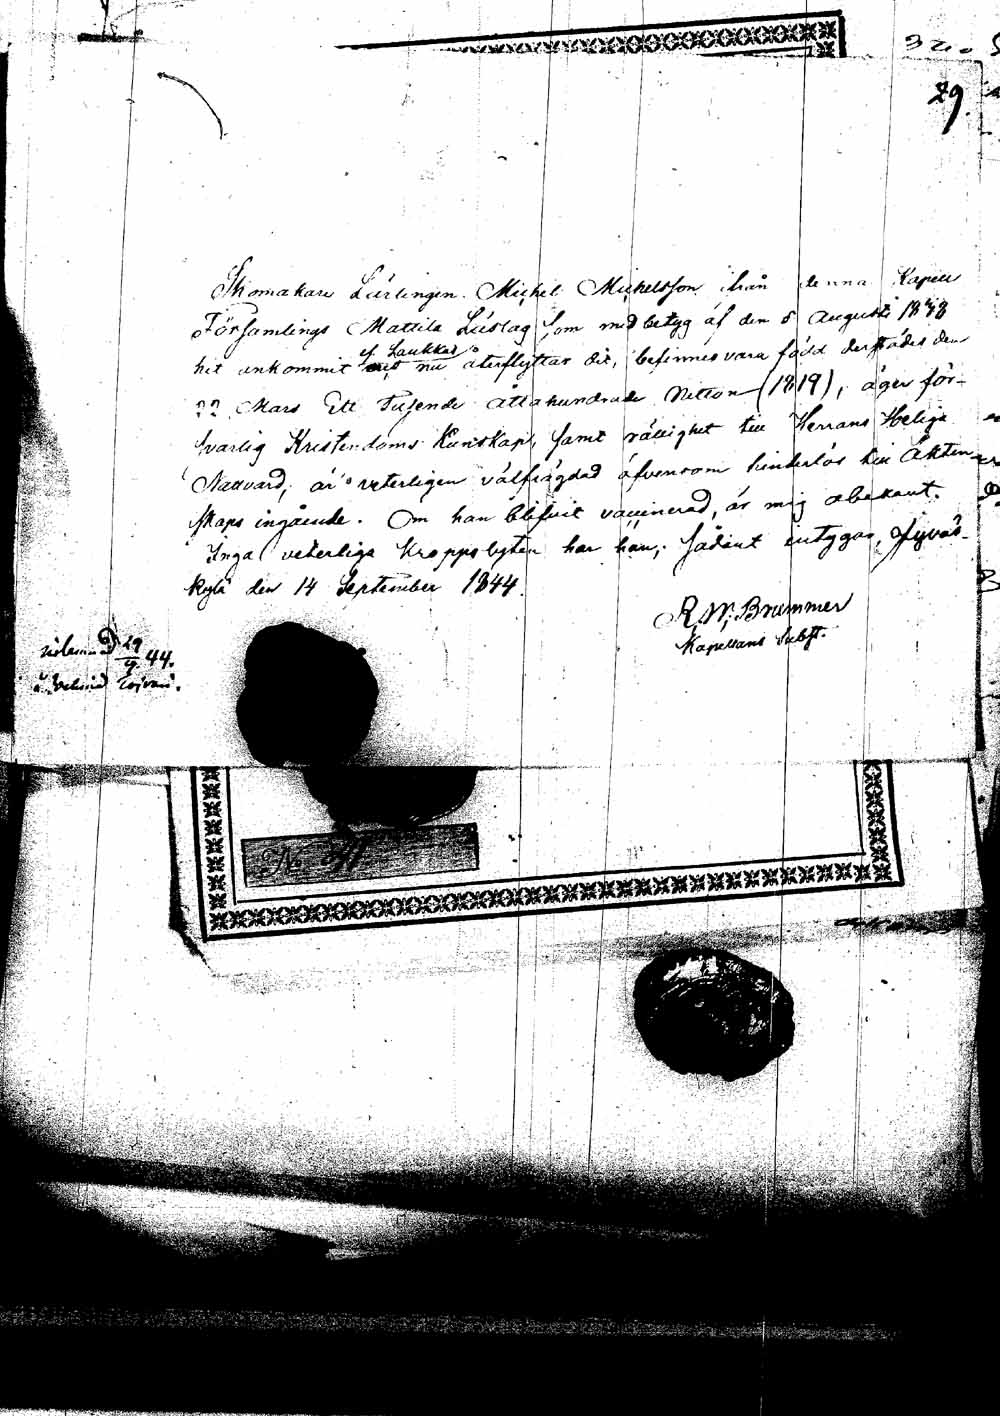 29.
Skomakare Lärlingen Michel Michelsson ifrån denna Kapell
Församlings Mattila Lüslag, som med betyg af den 5 Augusti 1838
f. Laukkas
hit ankommit nu återflyttar dit, befinnes vara född derstädes den
22 Mars Ett Tusende åttahundrade Nitton (1819), äger för-
svarlig Kristendoms Kunskap, samt rättighet till Herrans Helige
Nattvard, är veterligen välfrägdad äfvensom hinderlös till Äkten-
skaps ingående. Om han blifvit vaccinerad, är mig obekant.
Inga veterliga kroppslyten har han; sådant intygas, Jyväs-
kylä den 14 September 1844.
R. W. Brummer
Kapellans Subst.
29
9. 44.
No